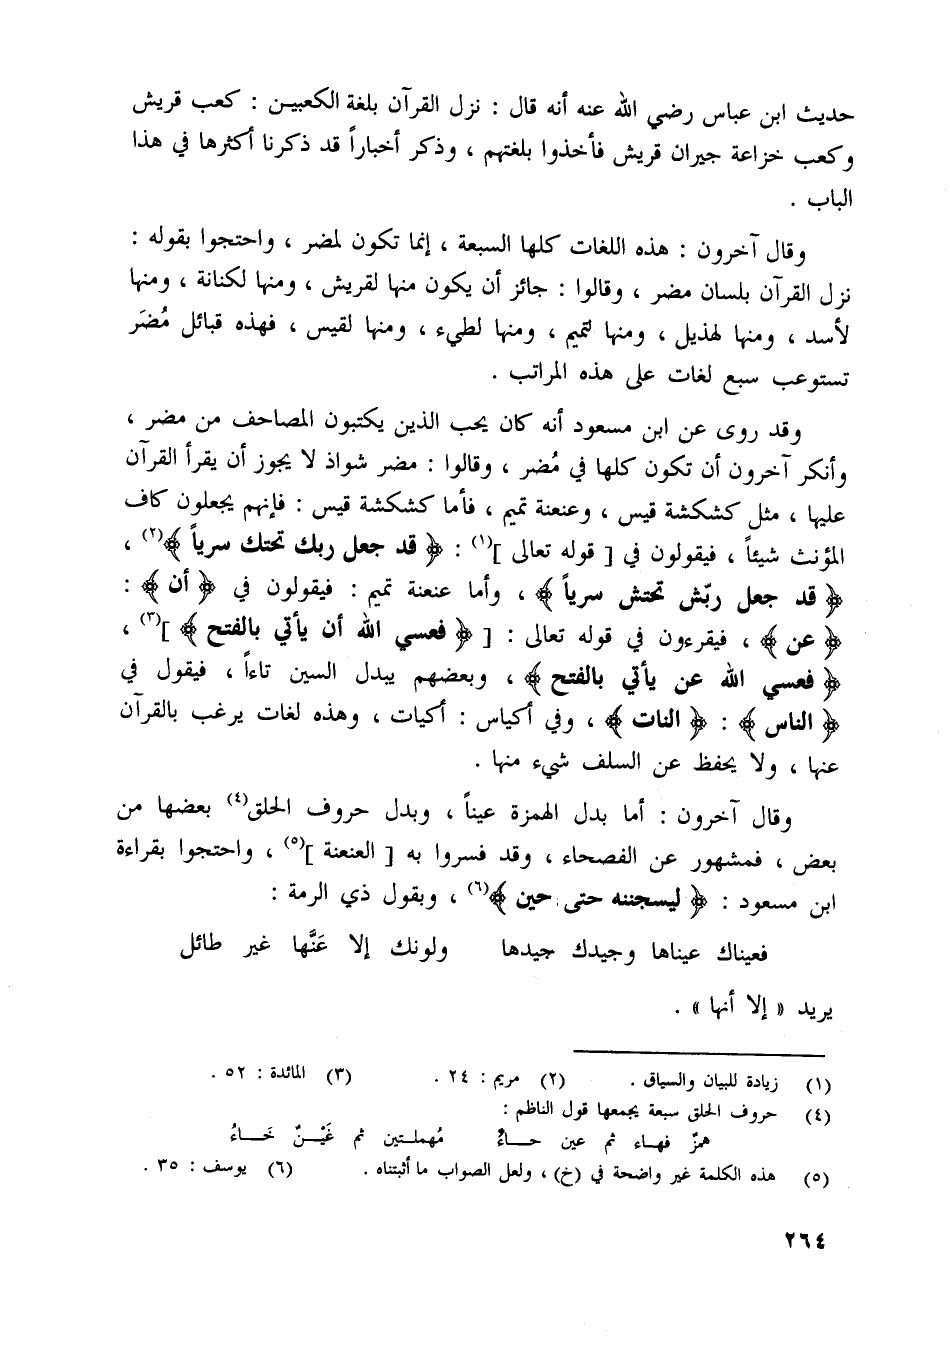 حديث ابن عباس رضي الله عنه أنه قال : نزل القرآن بلغة الكعبيـن : كعب قريش
وكعب خزاعة جيران قريش فأخذوا بلغتهم ، وذكر أخباراً قد ذكرنا أكثرها في هذا
الباب .
وقال آخرون : هذه اللغات كلها السبعة ، إنما تكون لمضر ، واحتجوا بقوله :
نزل القرآن بلسان مضر ، وقالوا : جائز أن يكون منها لقريش ، ومنها لكنانة ، ومنها
لأسد ، ومنها لهذيل ، ومنها لتميم ، ومنها لطيء ، ومنها لقيس ، فهذه قبائل مُضَر
تستوعب سبع لغات على هذه المراتب .
وقد روى عن ابن مسعود أنه كان يحب الذين يكتبون المصاحف من مضر ،
وأنكر آخرون أن تكون كلها في مُضر ، وقالوا : مضر شواذ لا يجوز أن يقرأ القرآن
عليها ، مثل كشكشة قيس ، وعنعنة تميم ، فأما كشكشة قيس : فإنهم يجعلون كاف
المؤنث شيئاً ، فيقولون في [ قوله تعالى ](١) : ﴿ قد جعل ربك تحتك سرياً ﴾(٢) ،
﴿ قد جعل ربّش تحتش سرياً ﴾ ، وأما عنعنة تميم : فيقولون في ﴿ أن ﴾ :
﴿ عن ﴾ ، فيقرءون في قوله تعالى : [ ﴿ فعسي الله أن يأتي بالفتح ﴾ ](٣) ،
﴿ فعسي الله عن يأتي بالفتح ﴾ ، وبعضهم يبدل السين تاءاً ، فيقول في
﴿ الناس ﴾ : ﴿ النات ﴾ ، وفي أكياس : أكيات ، وهذه لغات يرغب بالقرآن
عنها ، ولا يحفظ عن السلف شيء منها .
وقال آخرون : أما بدل الهمزة عيناً ، وبدل حروف الحلق(٤) بعضها من
بعض ، فمشهور عن الفصحاء ، وقد فسروا به [ العنعنة ](٥) ، واحتجوا بقراءة
ابن مسعود : ﴿ ليسجننه حتى حين ﴾(٦) ، وبقول ذي الرمة :
فعيناك عيناها وجيدك جيدها ولونك إلا عَنَّها غير طائل
يريد « إلا أنها » .
(١) زيادة للبيان والسياق . (٢) مريم : ٢٤ . (٣) المائدة : ٥٢ .
(٤) حروف الحلق سبعة يجمعها قول الناظم :
همزٌ فهـاء ثم عين حـاءٌ مُهملـتين ثم غَيْـنٌ خَـاءُ
(٥) هذه الكلمة غير واضحة في (خ) ، ولعل الصواب ما أثبتناه . (٦) يوسف : ٣٥ .
٢٦٤